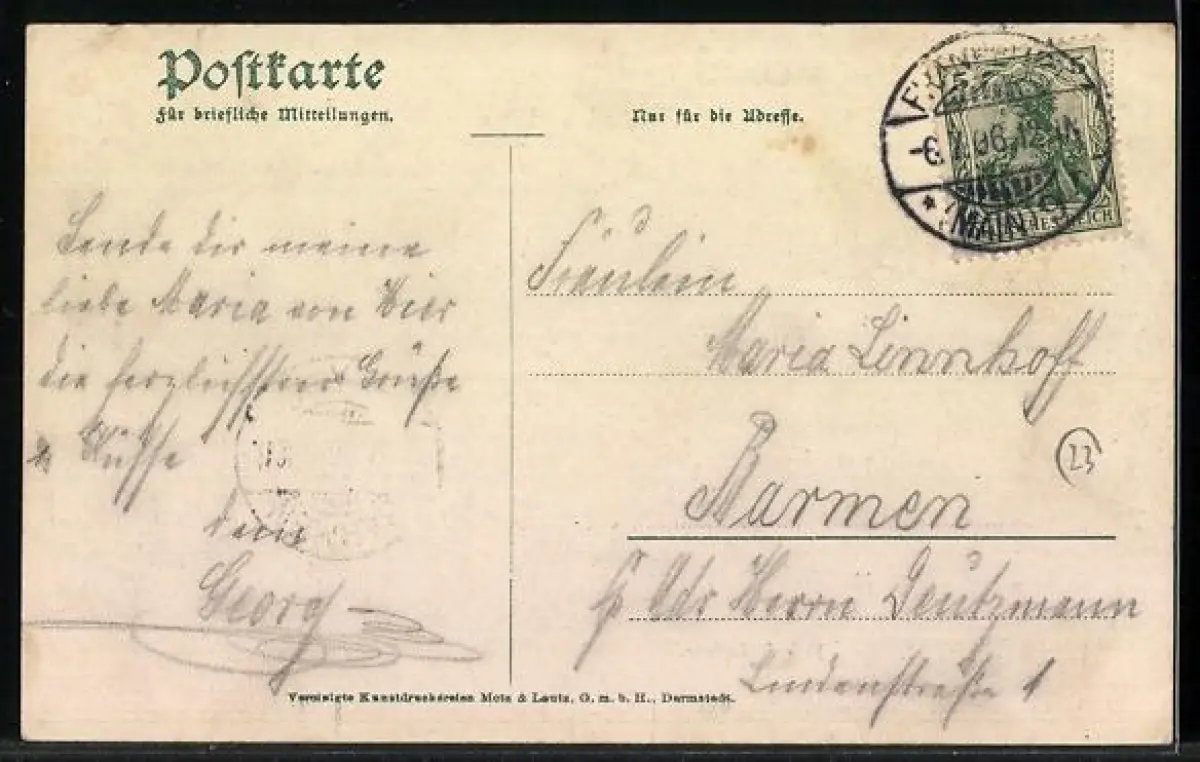 Postkarte
Für briefliche Mitteilungen.
Nur für die Adresse.
6. 06.12
(MAIN)
REICH
Sende dir meine
liebe Maria von hier
die herzlichsten Grüße
& Küsse
dein
Georg
Fräulein
Maria Linnhoff
Barmen
23
p Adr Herrn Deutzmann
Lindenstraße 1
Vereinigte Kunstdruckereien Metz & Lautz, G. m. b. H., Darmstadt.